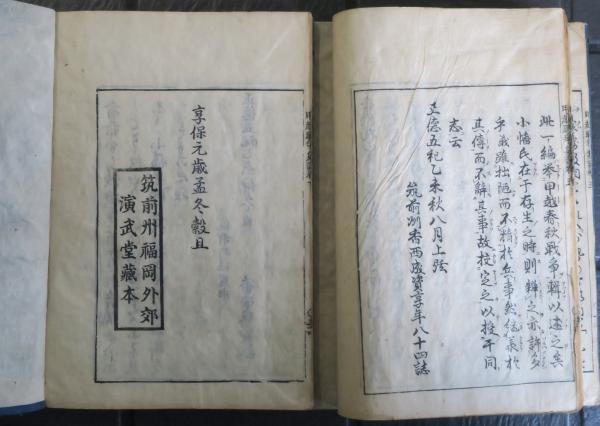 此一編本甲越春秋戰爭以述之矣
小幡氏在于存生之時則之亦許多
乎哉雖拙陋而不精於兵事然結義於
其傳而不辭其事故校定之以授于同
志云
正德五祀乙未秋八月上弦
筑前州香西成資享年八十四誌
享保元歲孟冬穀旦
筑前州福岡外郊
演武堂藏本